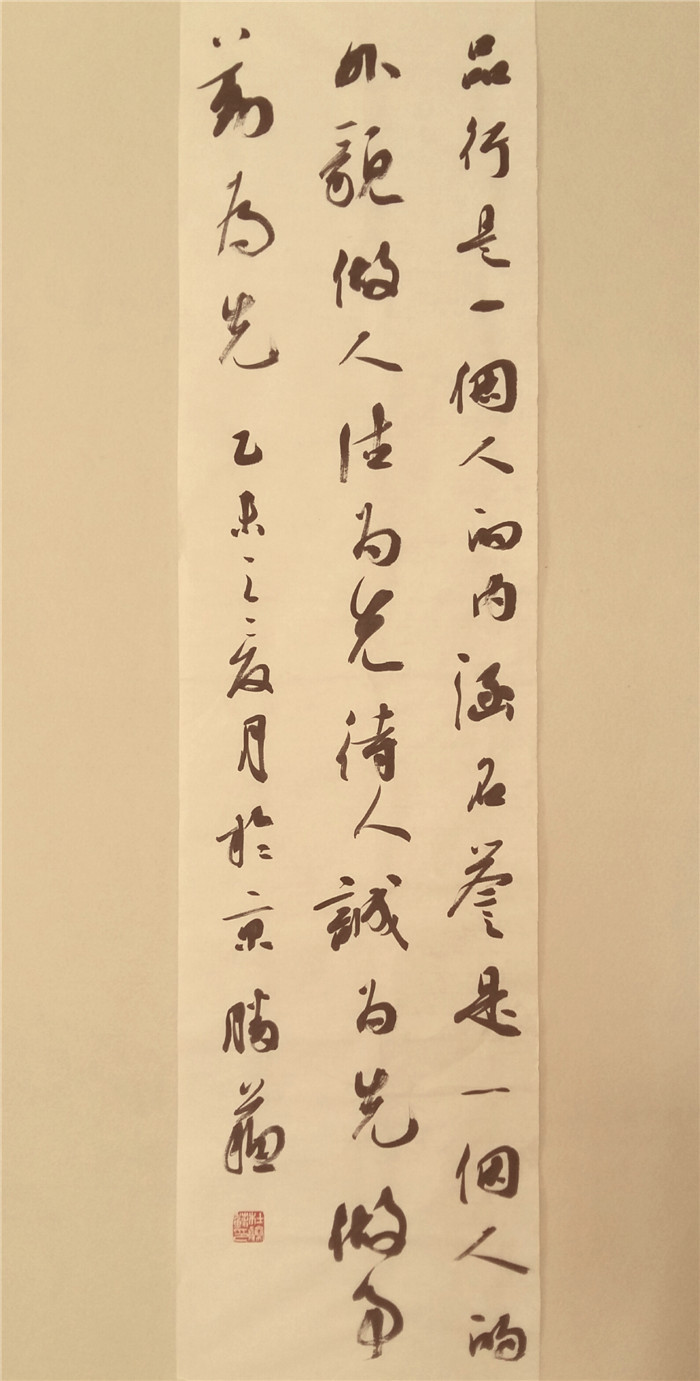 品行是一個人的内涵名誉是一個人的
外貌做人德为先待人誠为先做事
勤為先 乙未之夏月於京 勝